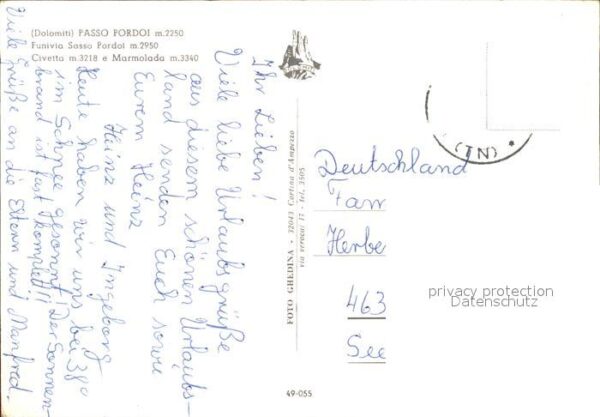 (Dolomiti) PASSO PORDOI m.2250
Funivia Sasso Pordoi m.2950
Civetta m.3218 e Marmolada m.3340
Ihr Lieben!
Viele liebe Urlaubsgrüße
aus diesem schönen Urlaubs-
land senden Euch sowie
Eurem Heinz
Heinz und Ingeborg
Heute haben wir uns bei 38°
im Schnee gesonnt! Der Sonnen-
brand ist fast komplett!!
Viele Grüße an die Eltern und Manfred.
FOTO GHEDINA • 32043 Cortina d'Ampezzo
via 17 - tel. 3505
(TN) *
Deutschland
Fam
Herbe
463
See
privacy protection
Datenschutz
49-055